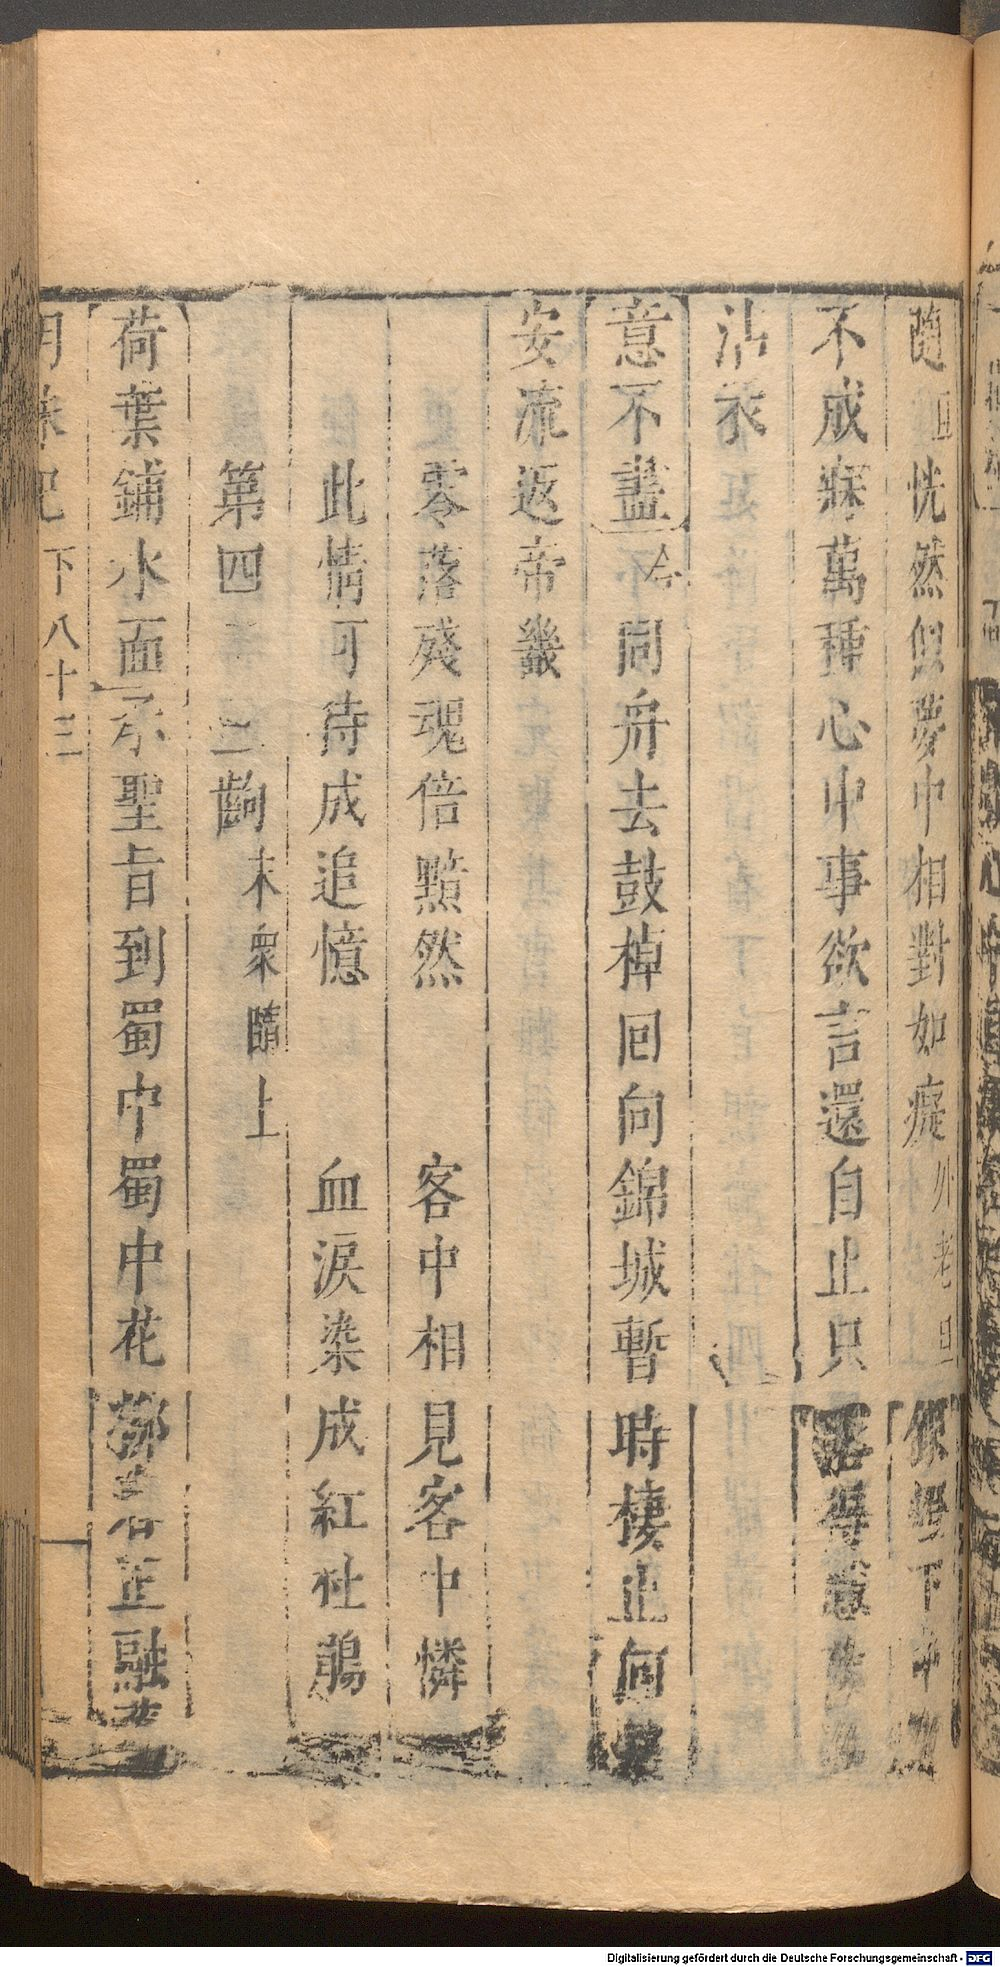 隨 旦 恍然但夢中相對如癡 外老旦
不成寐萬種心中事欲言還自止只
沾衣
意不盡 合 同舟去鼓棹回向錦城暫時棲止何
安流返帝畿
零落殘魂倍黯然 客中相見客中憐
此情可待成追憶 血淚染成紅杜鵑
第四十二齣 末衆隨上
荷葉鋪水面 承聖旨到蜀中蜀中花 正融
下八十三
Digitalisierung gefördert durch die Deutsche Forschungsgemeinschaft - DFG